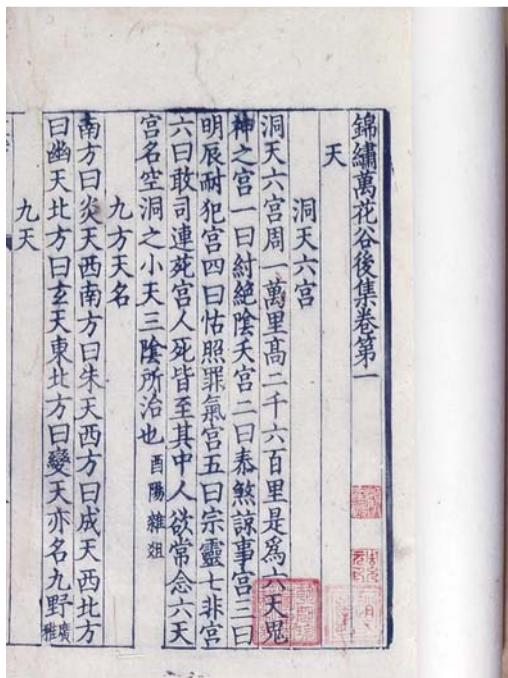 錦繡萬花谷後集卷第一
天
洞天六宮
洞天六宮周一萬里髙二千六百里是爲六天鬼
神之宮一曰紂絶陰天宮二曰泰煞諒事宮三曰
明辰耐犯宮四曰怙照罪氣宮五曰宗靈七非宮
六曰敢司連苑宮人死皆至其中人欲常念六天
宮名空洞之小天三陰所治也酉陽雜俎
九方天名
南方曰炎天西南方曰朱天西方曰成天西北方
曰幽天北方曰玄天東北方曰變天亦名九野廣雅
九天